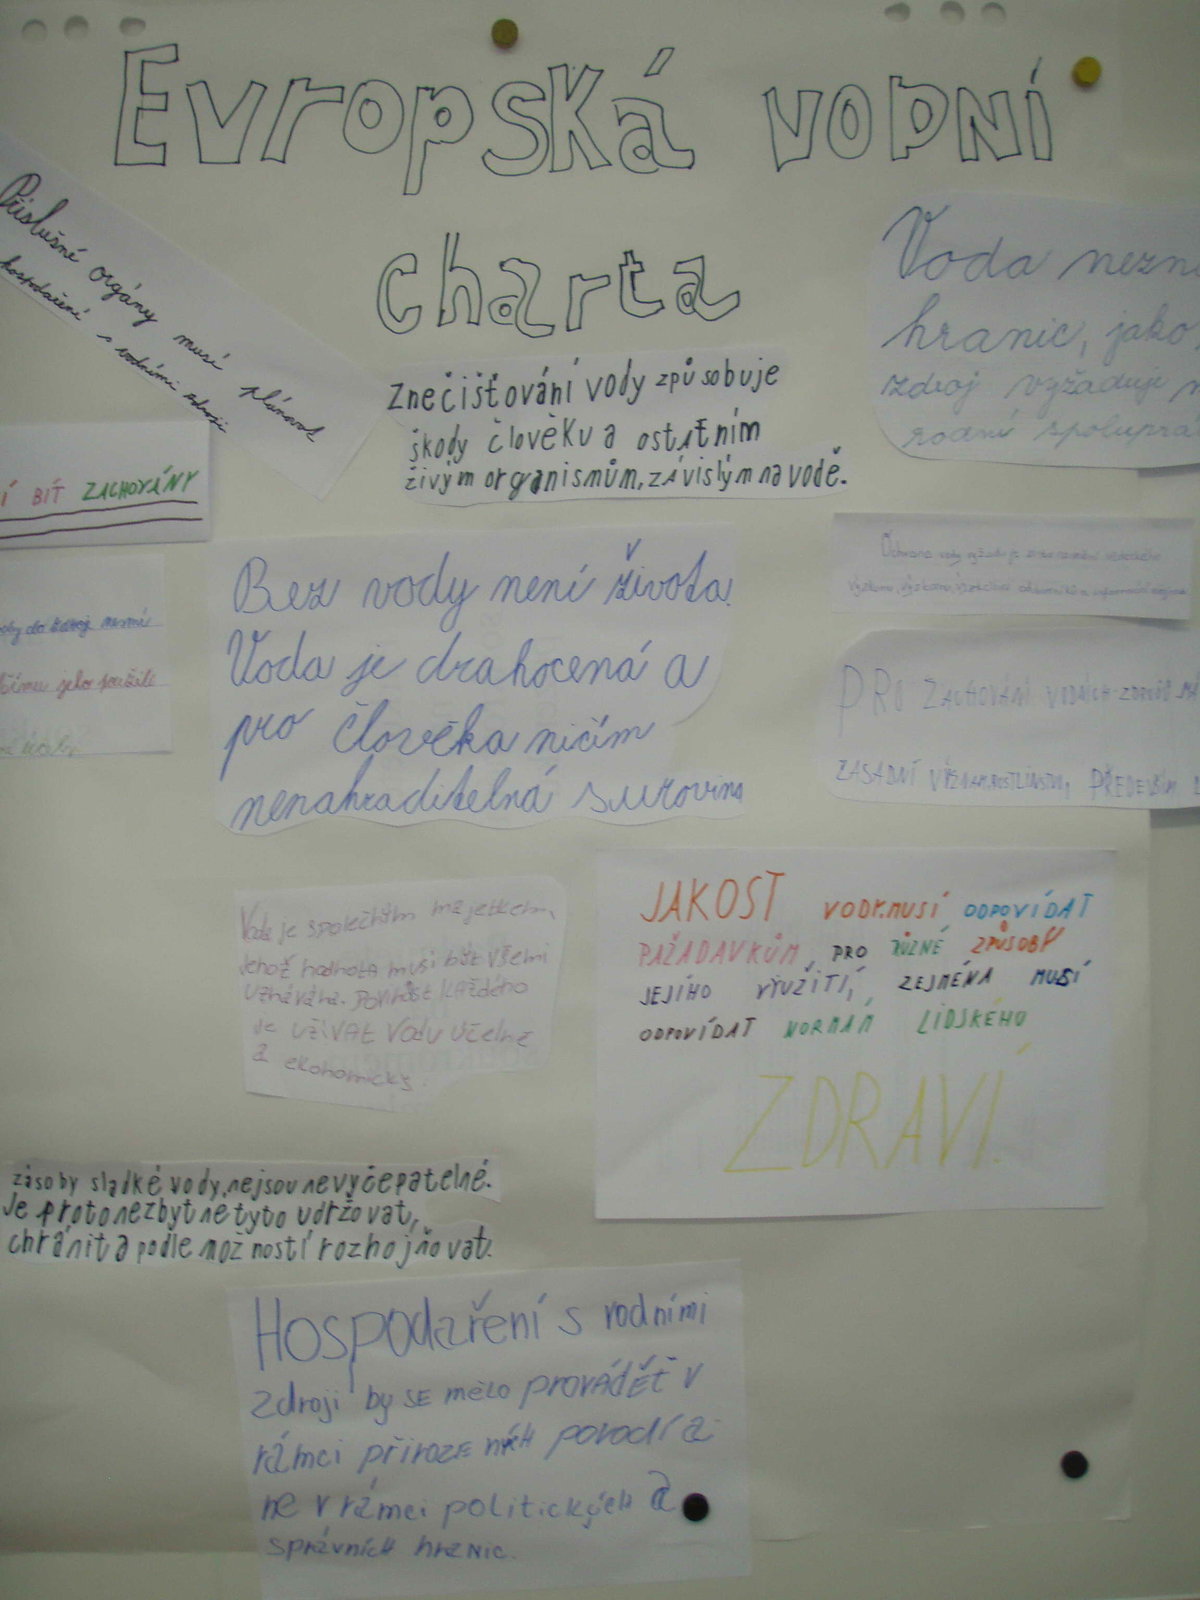 Evropská vodní
charta
Příslušné orgány musí plánovat
hospodaření s vodními zdroji
Voda nezn
hranic, jako
zdroj vyžaduje
rodní spoluprá
Znečišťování vody způsobuje
škody člověku a ostatním
živým organismům, závislým na vodě.
Í BÍT ZACHOVÁNY
Bez vody není života.
Voda je drahocená a
pro člověka ničím
nenahraditelná surovina
Ochrana vody vyžaduje
PRO ZACHOVÁNÍ VODNÍCH ZDROJŮ MÁ
ZASADNÍ PŘEDEVŠÍM
Voda je společným majetkem,
jehož hodnota musí být všemi
uznávána. Povinost každého
je UŽÍVAT Vodu účelně
a ekonomicky.
JAKOST VODY.MUSÍ ODPOVÍDAT
PAŽADAVKŮM, PRO RŮZNÉ ZPŮSOBY
JEJÍHO VYUŽITÍ, ZEJMÉNA MUSÍ
ODPOVÍDAT NORMÁM LIDSKÉHO
ZDRAVÍ.
zásoby sladké vody,nejsou nevyčepatelné.
Je proto nezbytné tyto udržovat,
chránit a podle možností rozhojňovat.
Hospodaření s vodními
zdroji by SE mělo provádět v
rámci přirozených povodí a
ne v rámci politických a
správních hranic.